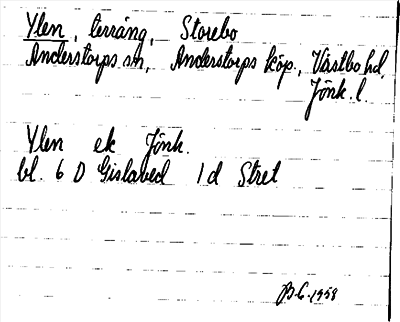 Ylen, terräng, Storebo
Anderstorps sn, Anderstorps köp., Västbo hd,
Jönk. l.
Ylen ek Jönk.
bl. 6 D Gislaved 1d Stret
1958